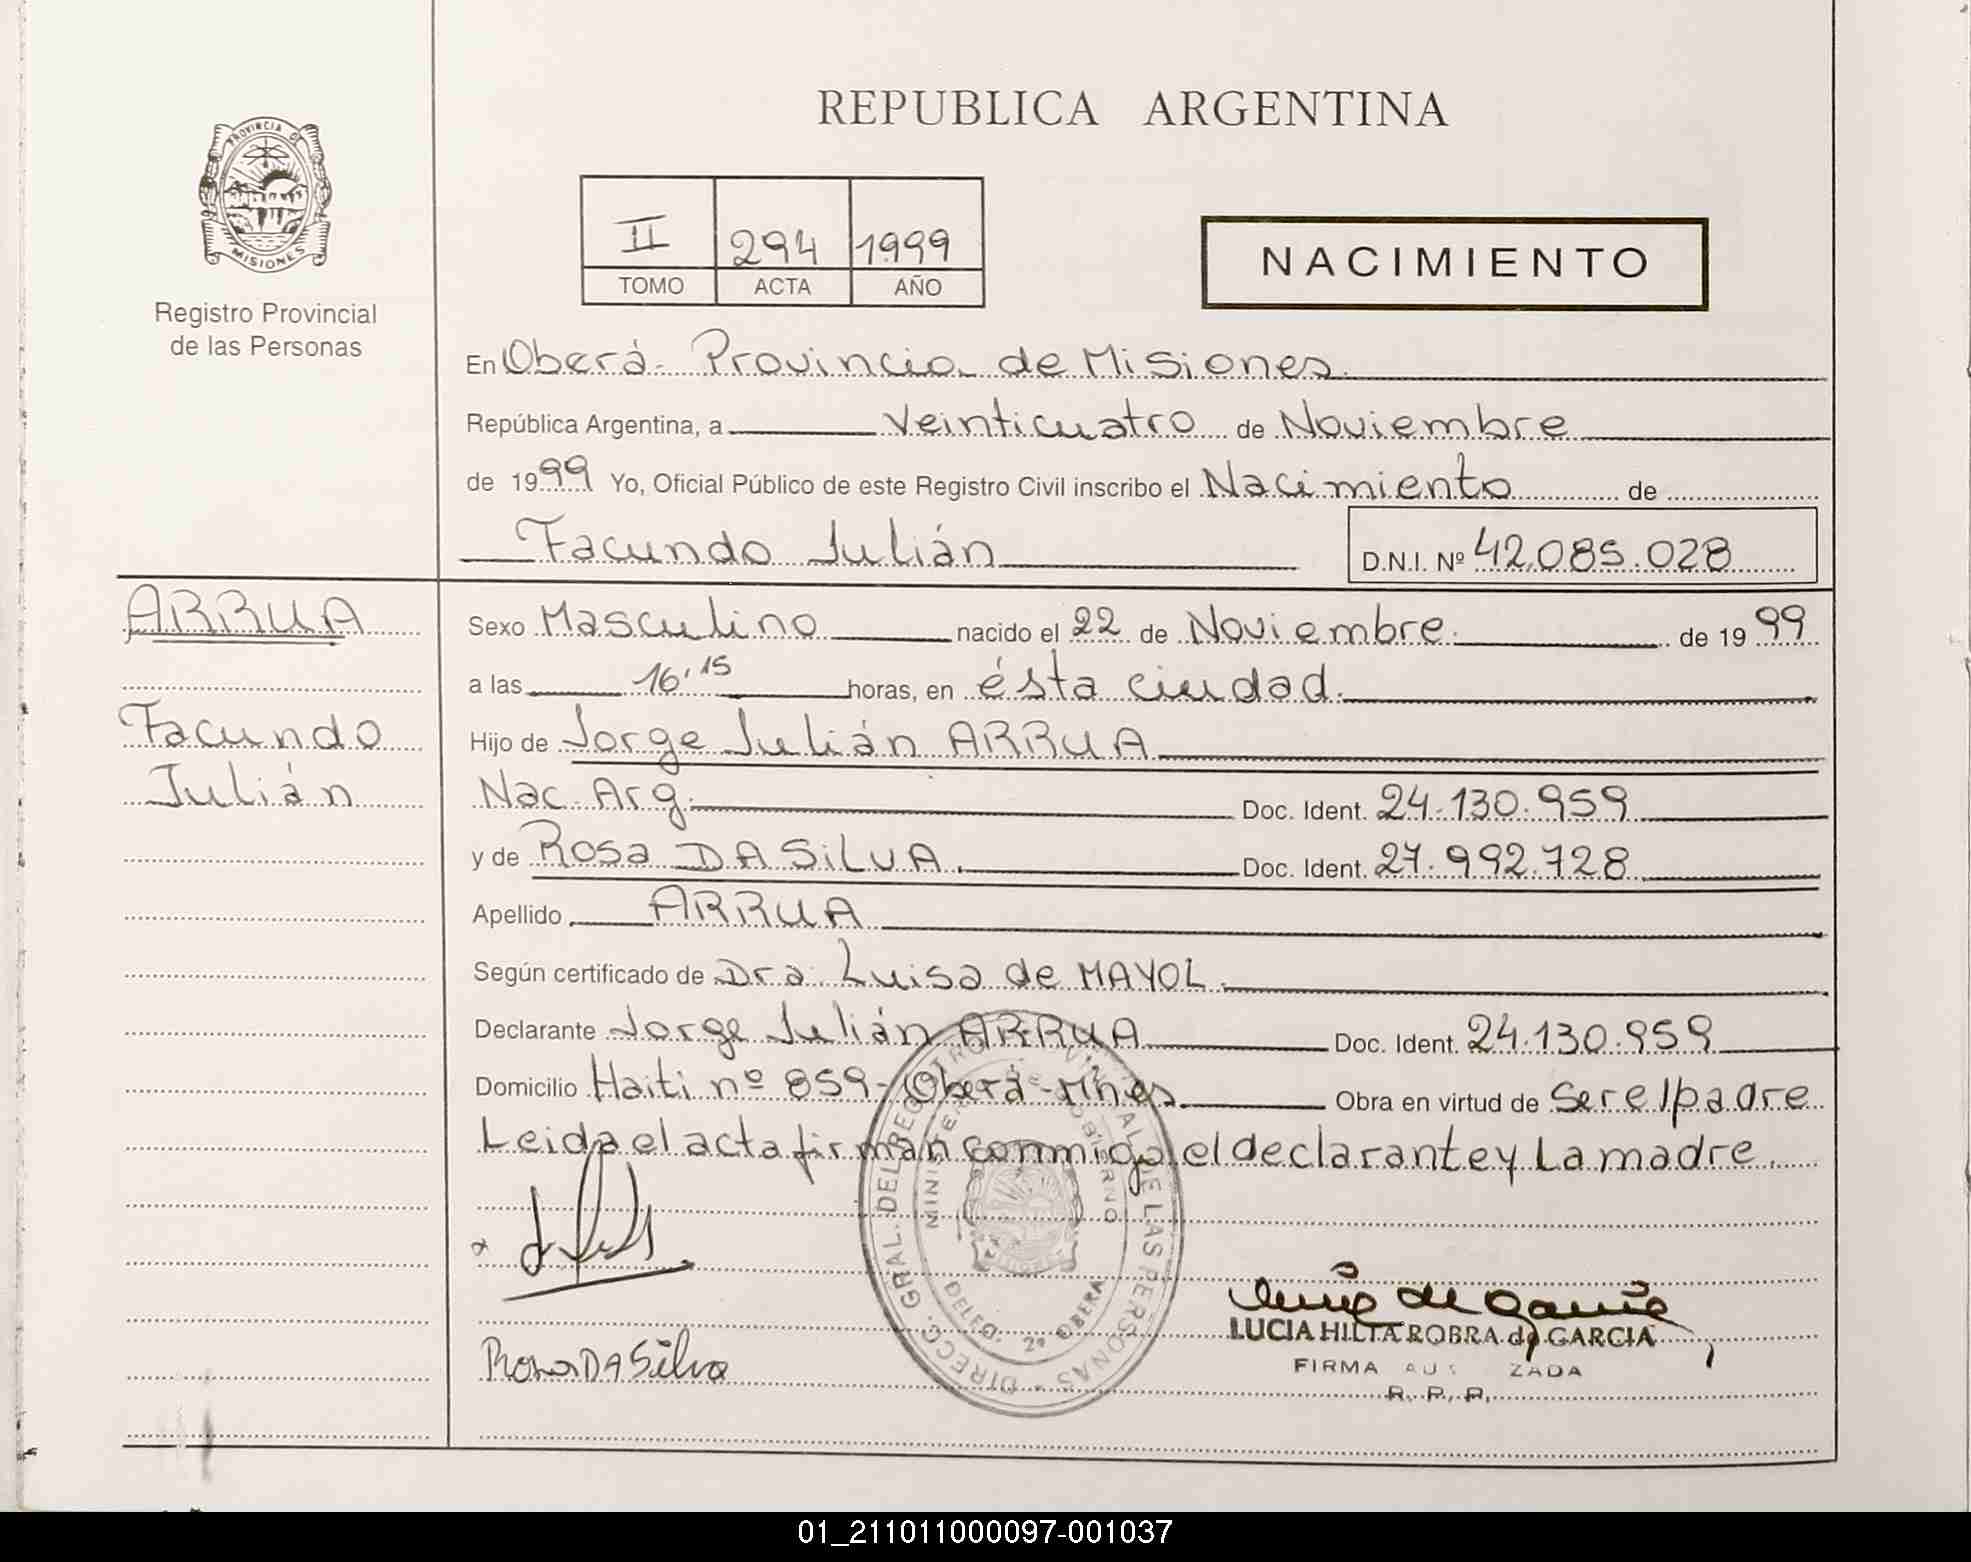 REPUBLICA ARGENTINA
PROVINCIA DE
MISIONES
Registro Provincial
de las Personas
II 294 1999
TOMO ACTA AÑO
NACIMIENTO
En Oberá - Provincia de Misiones.
República Argentina, a Veinticuatro de Noviembre
de 1999 Yo, Oficial Público de este Registro Civil inscribo el Nacimiento de
Facundo Julián D.N.I. Nº 42.085.028
ARRUA
Facundo
Julián
Sexo Masculino nacido el 22 de Noviembre de 1999
a las 16,15 horas, en ésta ciudad.
Hijo de Jorge Julián ARRUA
Nac. Arg. Doc. Ident. 24.130.959
y de Rosa DA SiLVA. Doc. Ident. 27.992.728
Apellido ARRUA
Según certificado de Dra. Luisa de MAYOL.
Declarante Jorge Julián ARRUA Doc. Ident. 24.130.959
Domicilio Haiti nº 859 - Oberá - Mnes. Obra en virtud de Ser el padre
Leida el acta firman conmigo el declarante y La madre.
DIRECC. GRAL. DEL REGISTRO PROVINCIAL DE LAS PERSONAS
MINISTERIO DE GOBIERNO
DELEG. 2ª OBERA
Rosa DA Silva
LUCIA HILTA ROBRA de GARCIA
FIRMA AUTORIZADA
R. P. P.
01_211011000097-001037